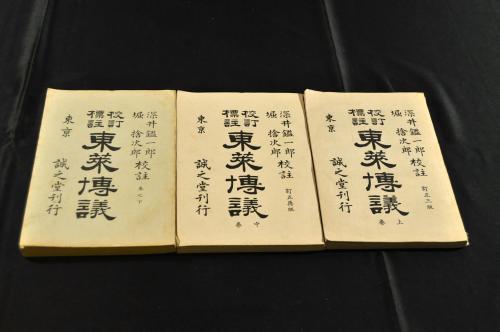 深井鑑一郎
堀捨次郎
校註
訂正三版
校訂
標註
東萊博議
卷上
東京
誠之堂刊行
深井鑑一郎
堀捨次郎
校註
訂正再版
校訂
標註
東萊博議
卷中
東京
誠之堂刊行
深井鑑一郎
堀捨次郎
校註
卷之下
校訂
標註
東萊博議
東京
誠之堂刊行